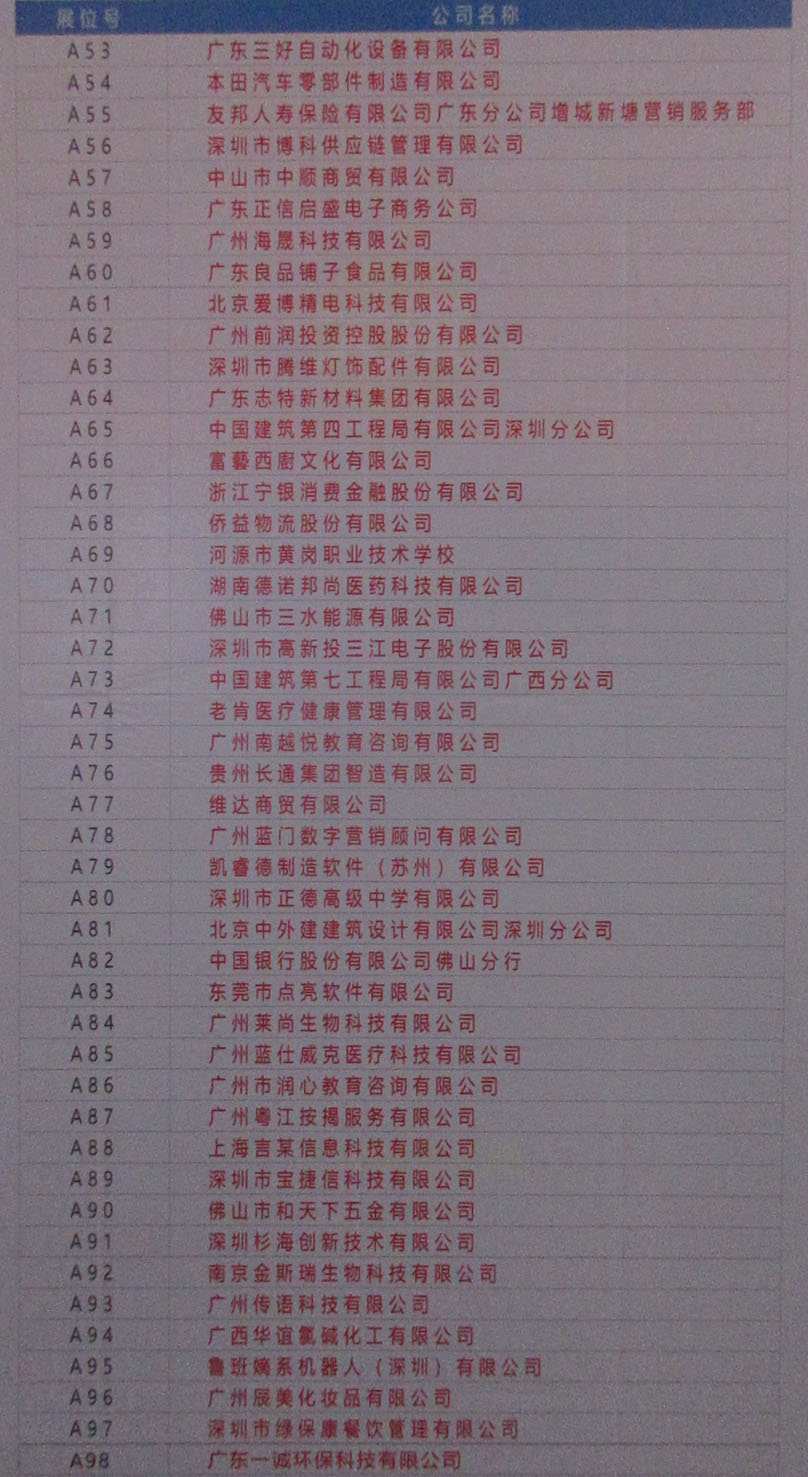 展位号 公司名称
A53 广东三好自动化设备有限公司
A54 本田汽车零部件制造有限公司
A55 友邦人寿保险有限公司广东分公司增城新塘营销服务部
A56 深圳市博科供应链管理有限公司
A57 中山市中顺商贸有限公司
A58 广东正信启盛电子商务公司
A59 广州海晟科技有限公司
A60 广东良品铺子食品有限公司
A61 北京爱博精电科技有限公司
A62 广州前润投资控股股份有限公司
A63 深圳市腾维灯饰配件有限公司
A64 广东志特新材料集团有限公司
A65 中国建筑第四工程局有限公司深圳分公司
A66 富藝西廚文化有限公司
A67 浙江宁银消费金融股份有限公司
A68 侨益物流股份有限公司
A69 河源市黄岗职业技术学校
A70 湖南德诺邦尚医药科技有限公司
A71 佛山市三水能源有限公司
A72 深圳市高新投三江电子股份有限公司
A73 中国建筑第七工程局有限公司广西分公司
A74 老肯医疗健康管理有限公司
A75 广州南越悦教育咨询有限公司
A76 贵州长通集团智造有限公司
A77 维达商贸有限公司
A78 广州蓝门数字营销顾问有限公司
A79 凯睿德制造软件（苏州）有限公司
A80 深圳市正德高级中学有限公司
A81 北京中外建建筑设计有限公司深圳分公司
A82 中国银行股份有限公司佛山分行
A83 东莞市点亮软件有限公司
A84 广州莱尚生物科技有限公司
A85 广州蓝仕威克医疗科技有限公司
A86 广州市润心教育咨询有限公司
A87 广州粤江按揭服务有限公司
A88 上海言某信息科技有限公司
A89 深圳市宝捷信科技有限公司
A90 佛山市和天下五金有限公司
A91 深圳杉海创新技术有限公司
A92 南京金斯瑞生物科技有限公司
A93 广州传语科技有限公司
A94 广西华谊氯碱化工有限公司
A95 鲁班嫡系机器人（深圳）有限公司
A96 广州辰美化妆品有限公司
A97 深圳市绿保康餐饮管理有限公司
A98 广东一诚环保科技有限公司